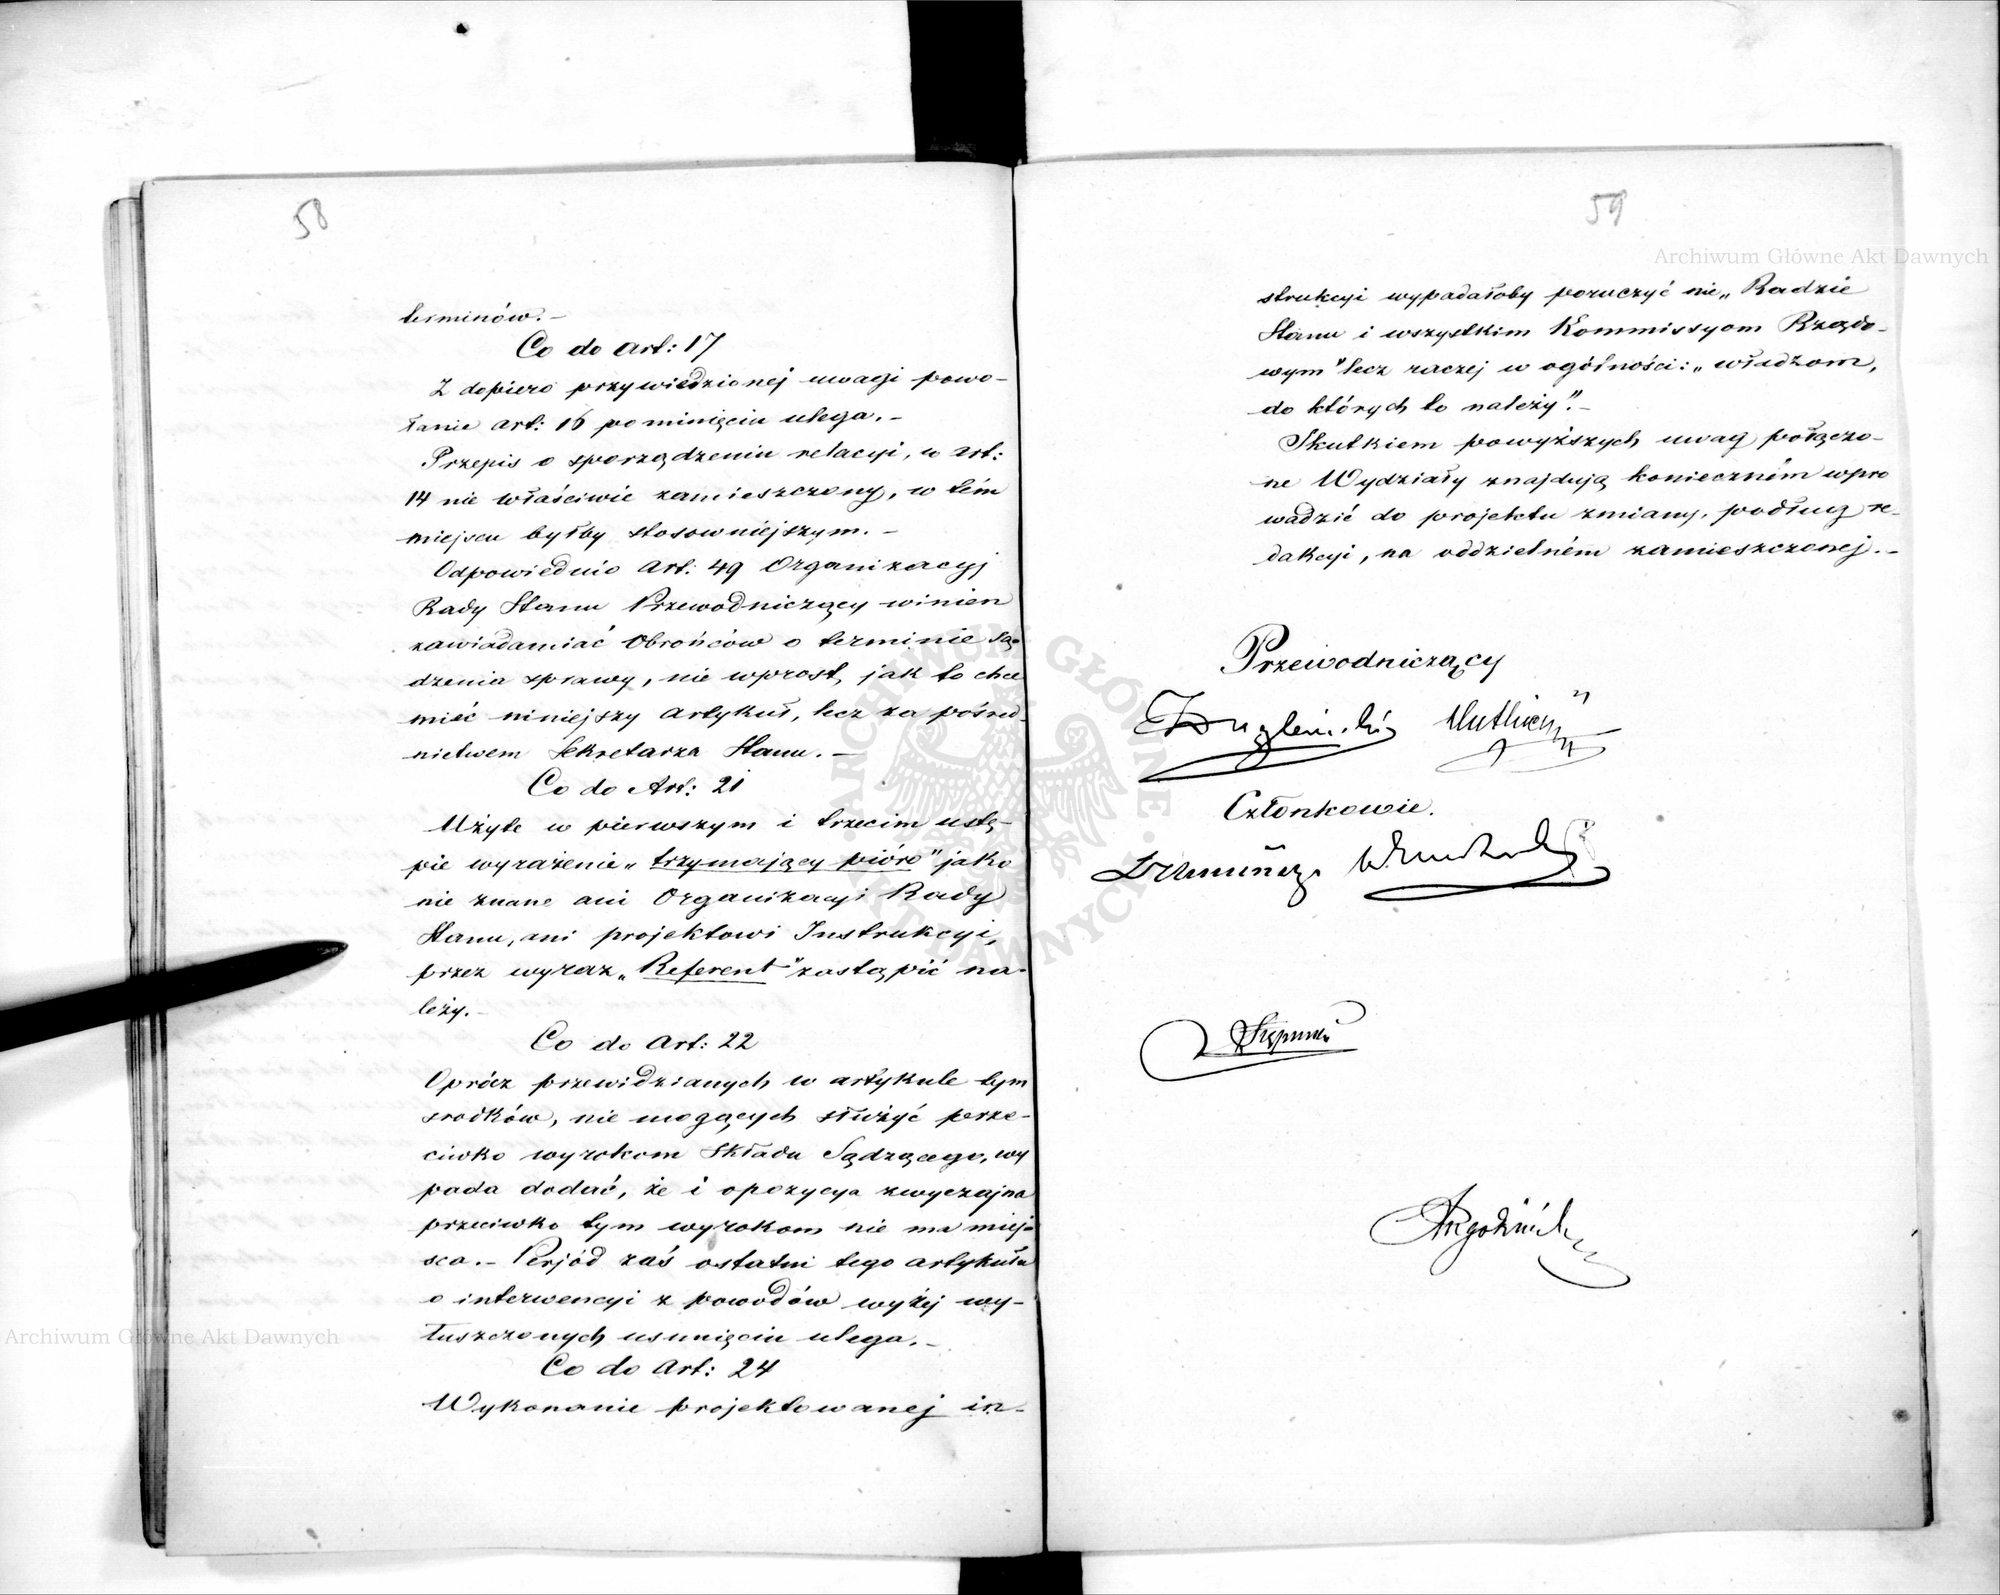 58
terminów.–
Co do art: 17
Z dopiero przywiedzionej uwagi powo-
łanie art: 16 pominięciu ulega.–
Przepis o sporządzeniu relacyi, w art:
14 nie właściwie zamieszczony, w tém
miejscu byłby stosowniejszym.–
Odpowiednio art: 49 Organizacyj
Rady Stanu Przewodniczący winien
zawiadamiać Obrońców o terminie są-
dzenia sprawy, nie wprost, jak to chce
mieć niniejszy artykuł, lecz za pośred-
nictwem Sekretarza Stanu.–
Co do Art: 21
Użyte w pierwszym i trzecim ustę-
pie wyrażenie „trzymający pióro" jako
nie znane ani Organizacyi Rady
Stanu, ani projektowi Instrukcyi,
przez wyraz „Referent" zastąpić na-
leży.–
Co do art: 22
Oprócz przewidzianych w artykule tym
srodków, nie mogących służyć prze-
ciwko wyrokom Składu Sądzącego, wy
pada dodać, że i opozycya zwyczajna
przeciwko tym wyrokom nie ma miej-
sca.– Perjód zaś ostatni tego artykułu
o interwencyi z powodów wyżej wy-
łuszczonych usunięciu ulega.–
Co do art: 24
Wykonanie projektowanej in-
59
strukcyi wypadałoby poruczyć nie „Radzie
Stanu i wszystkim Kommissyom Rządo-
wym" lecz raczej w ogólności: „władzom,
do których to należy".–
Skutkiem powyższych uwag połączo-
ne Wydziały znajdują konieczném wpro
wadzić do projektu zmiany, podług re-
dakcyi, na oddzielném zamieszczonej.–
Przewodniczący
Członkowie.
Archiwum Główne Akt Dawnych
Archiwum Główne Akt Dawnych
ARCHIWUM GŁÓWNE AKT DAWNYCH